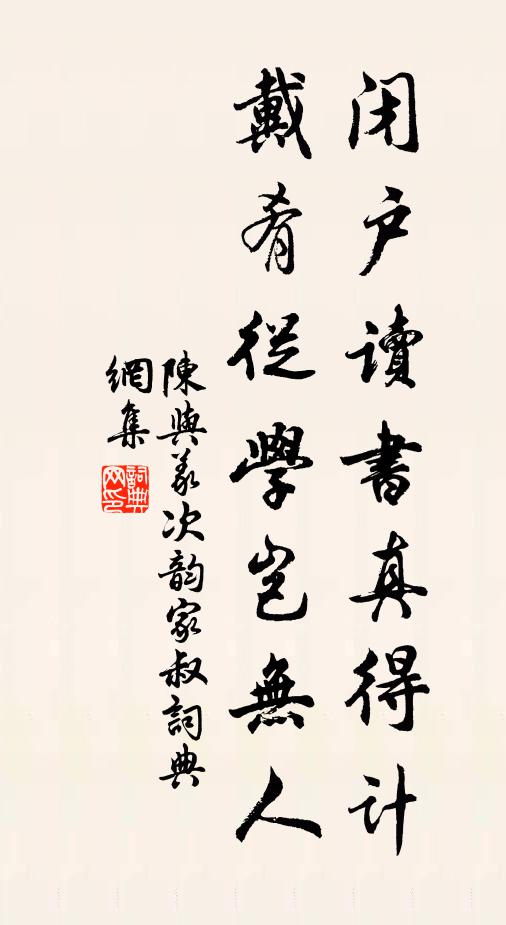 闭户读書真得计
戴肴從學岂無人
陳與義次韵家叔詞典
網集
詞典
网印